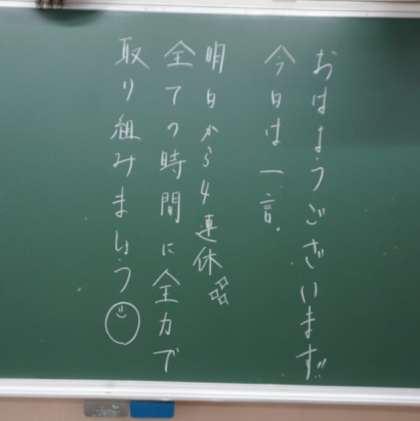 おはようございます!!
今日は一言.
明日から4連休
全ての時間に全力で
取り組みましょう